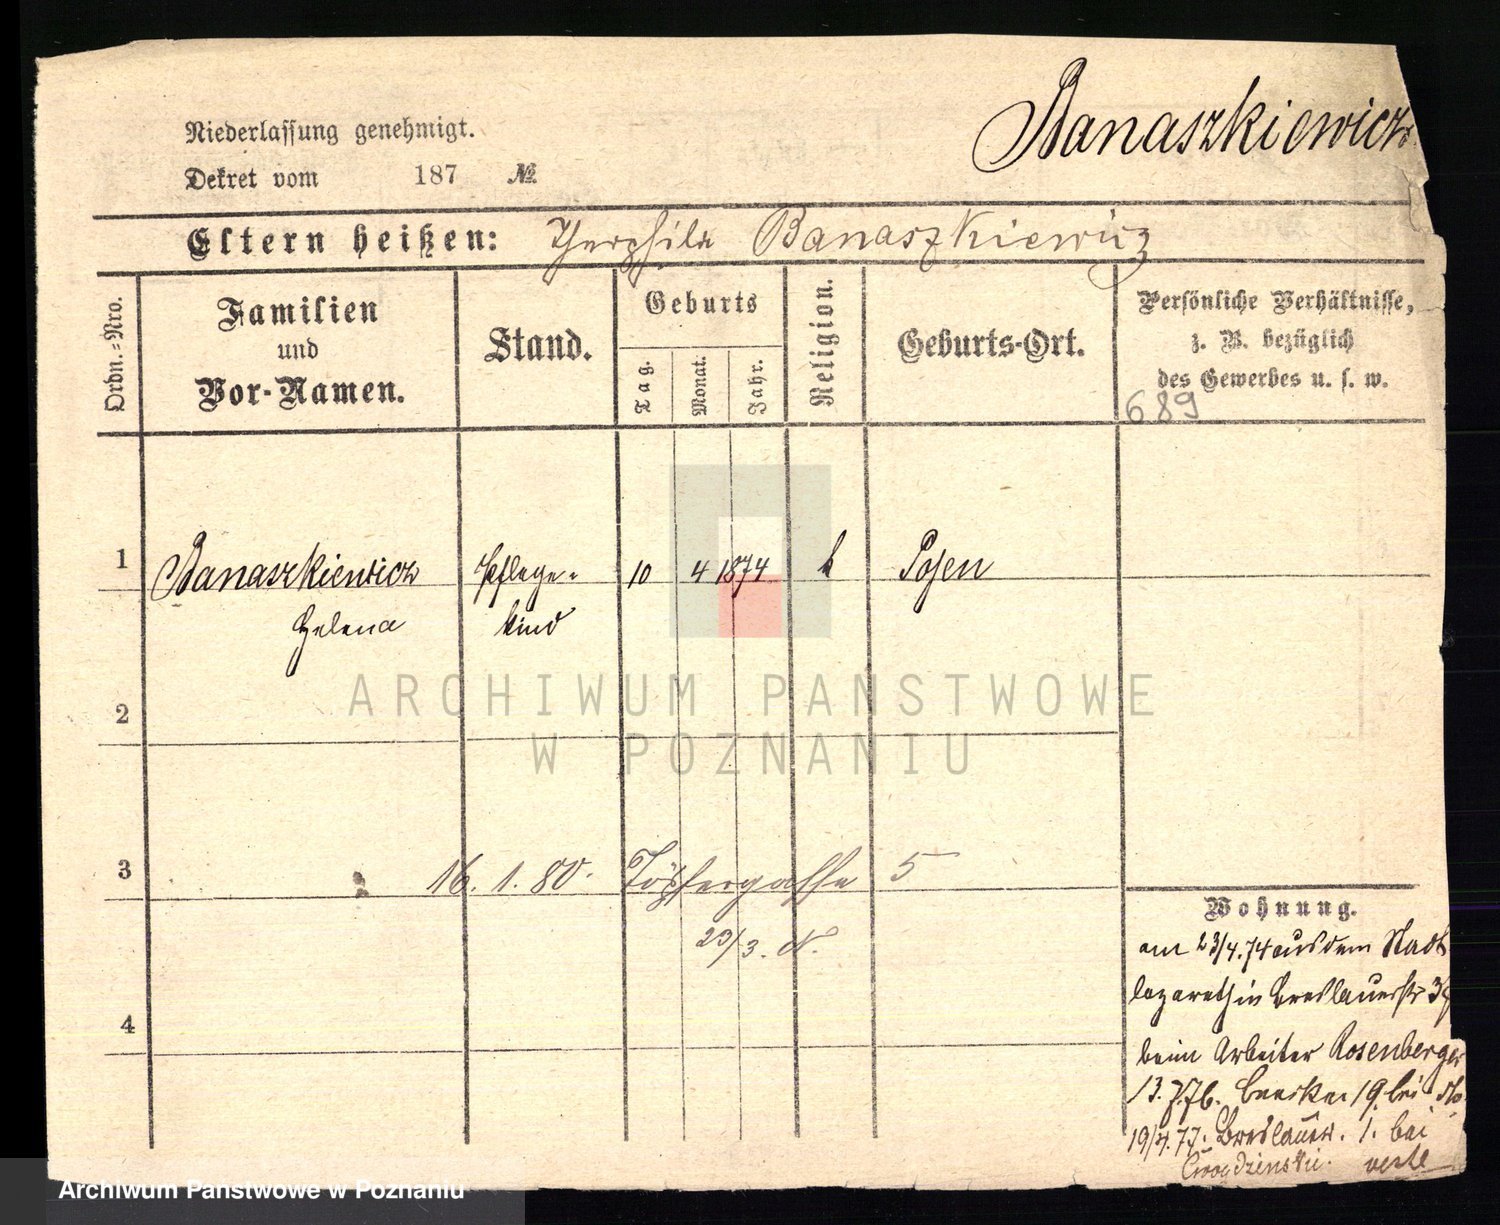 Banaszkiewicz
Niederlassung genehmigt.
Dekret vom 187 №
Eltern heißen: Theophila Banaszkiewicz
Ordn.-Nro.
Familien
und
Vor-Namen.
Stand.
Geburts
Tag.
Monat.
Jahr.
Religion.
Geburts-Ort.
Persönliche Verhältnisse,
z. B. bezüglich
des Gewerbes u. s. w.
689
1 Banaszkiewicz Pflege- 10 4 1874 k Posen
Helena kind
ARCHIWUM PANSTWOWE
W POZNANIU
2
3 16. 1. 80. Töpfergasse 5
23/3. N.
4
Wohnung.
am 23/4.74 aus dem Stadt
lazareth in Breslauerstr
beim Arbeiter Rosenberger
13.7.76. 19. bei
19/4.77. Breslauer. 1. bei
Archiwum Panstwowe w Poznaniu